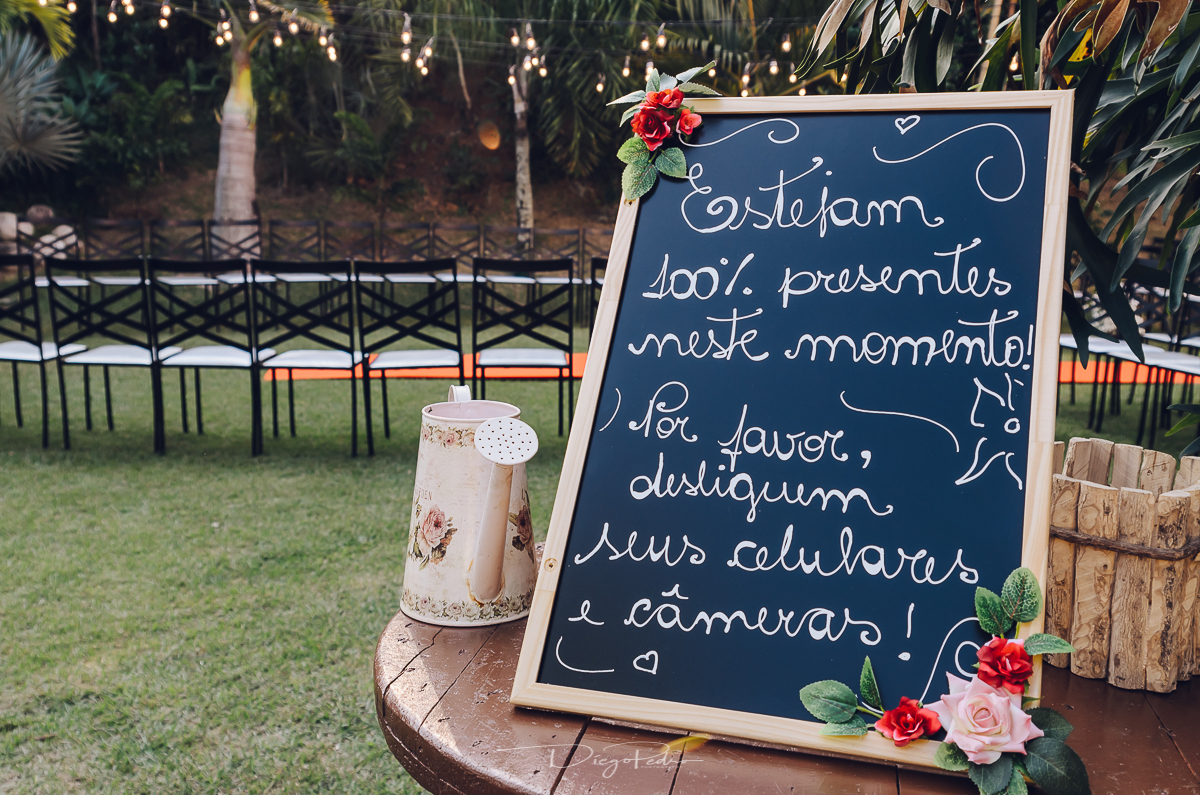 Estejam
100% presentes
neste momento!
Por favor,
desliguem
seus celulares
e câmeras!
DiegoPedro